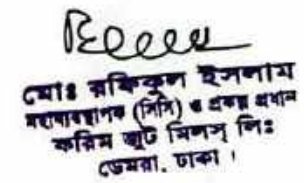 মোঃ রফিকুল ইসলাম
মহাব্যবস্থাপক (সিসি) ও প্রকল্প প্রধান
করিম জুট মিলস্ লিঃ
ডেমরা, ঢাকা ।